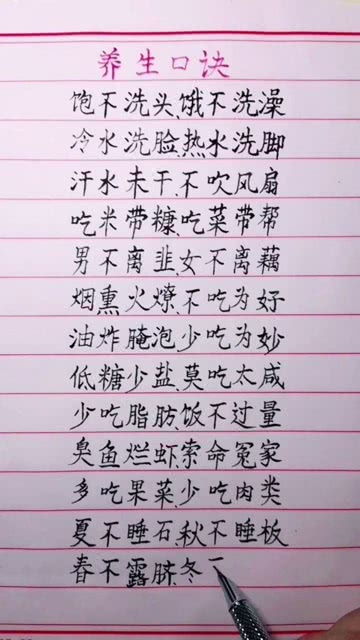 养生口诀
饱不洗头、饿不洗澡
冷水洗脸、热水洗脚
汗水未干、不吹风扇
吃米带糠、吃菜带帮
男不离韭、女不离藕
烟熏火燎、不吃为好
油炸腌泡、少吃为妙
低糖少盐、莫吃太咸
少吃脂肪、饭不过量
臭鱼烂虾、索命冤家
多吃果菜、少吃肉类
夏不睡石、秋不睡板
春不露脐、冬